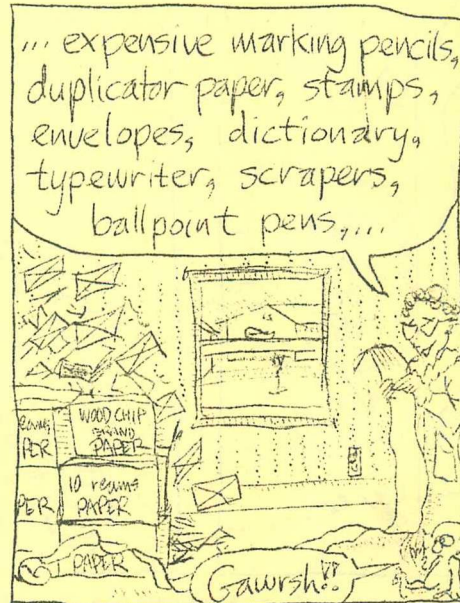 ... expensive marking pencils,
duplicator paper, stamps,
envelopes, dictionary,
typewriter, scrapers,
ballpoint pens,...
WOOD CHIP
BRAND
PAPER
PER
10 reams
PAPER
PER
PAPER
Gawrsh!!